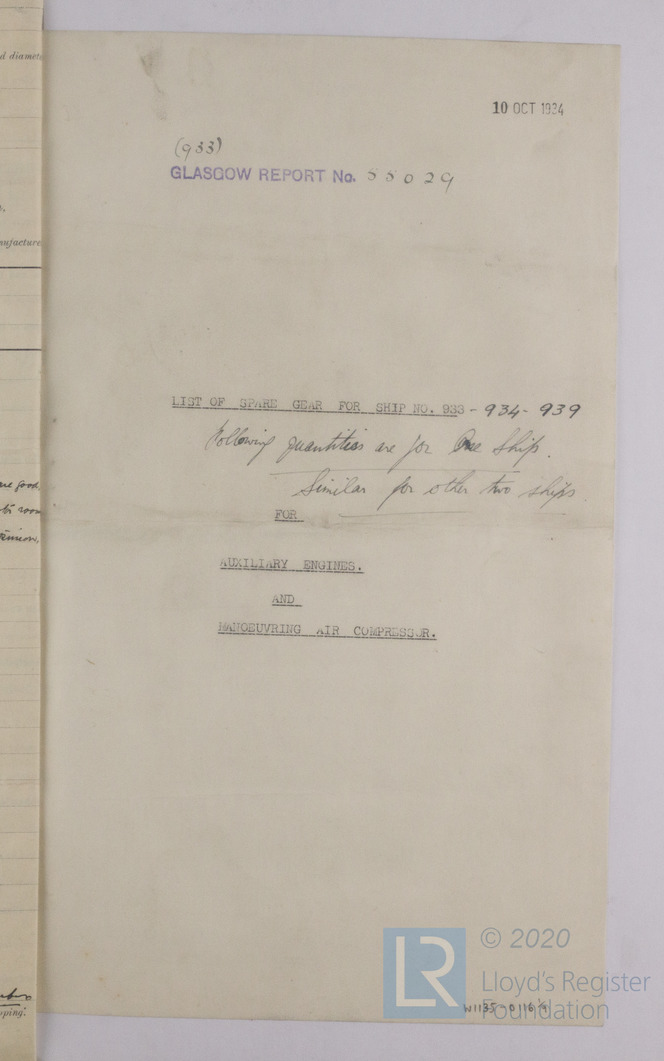 d diamete
nufacture
10 OCT 1934
(933)
GLASGOW REPORT No. 55029
LIST OF SPARE GEAR FOR SHIP NO. 933 - 934 - 939
Following quantities are for One Ship.
Similar for other two ships.
FOR
AUXILIARY ENGINES.
AND
MANOEUVRING AIR COMPRESSOR.
pping.
LR
© 2020
Lloyd's Register
Foundation
W1135-0116